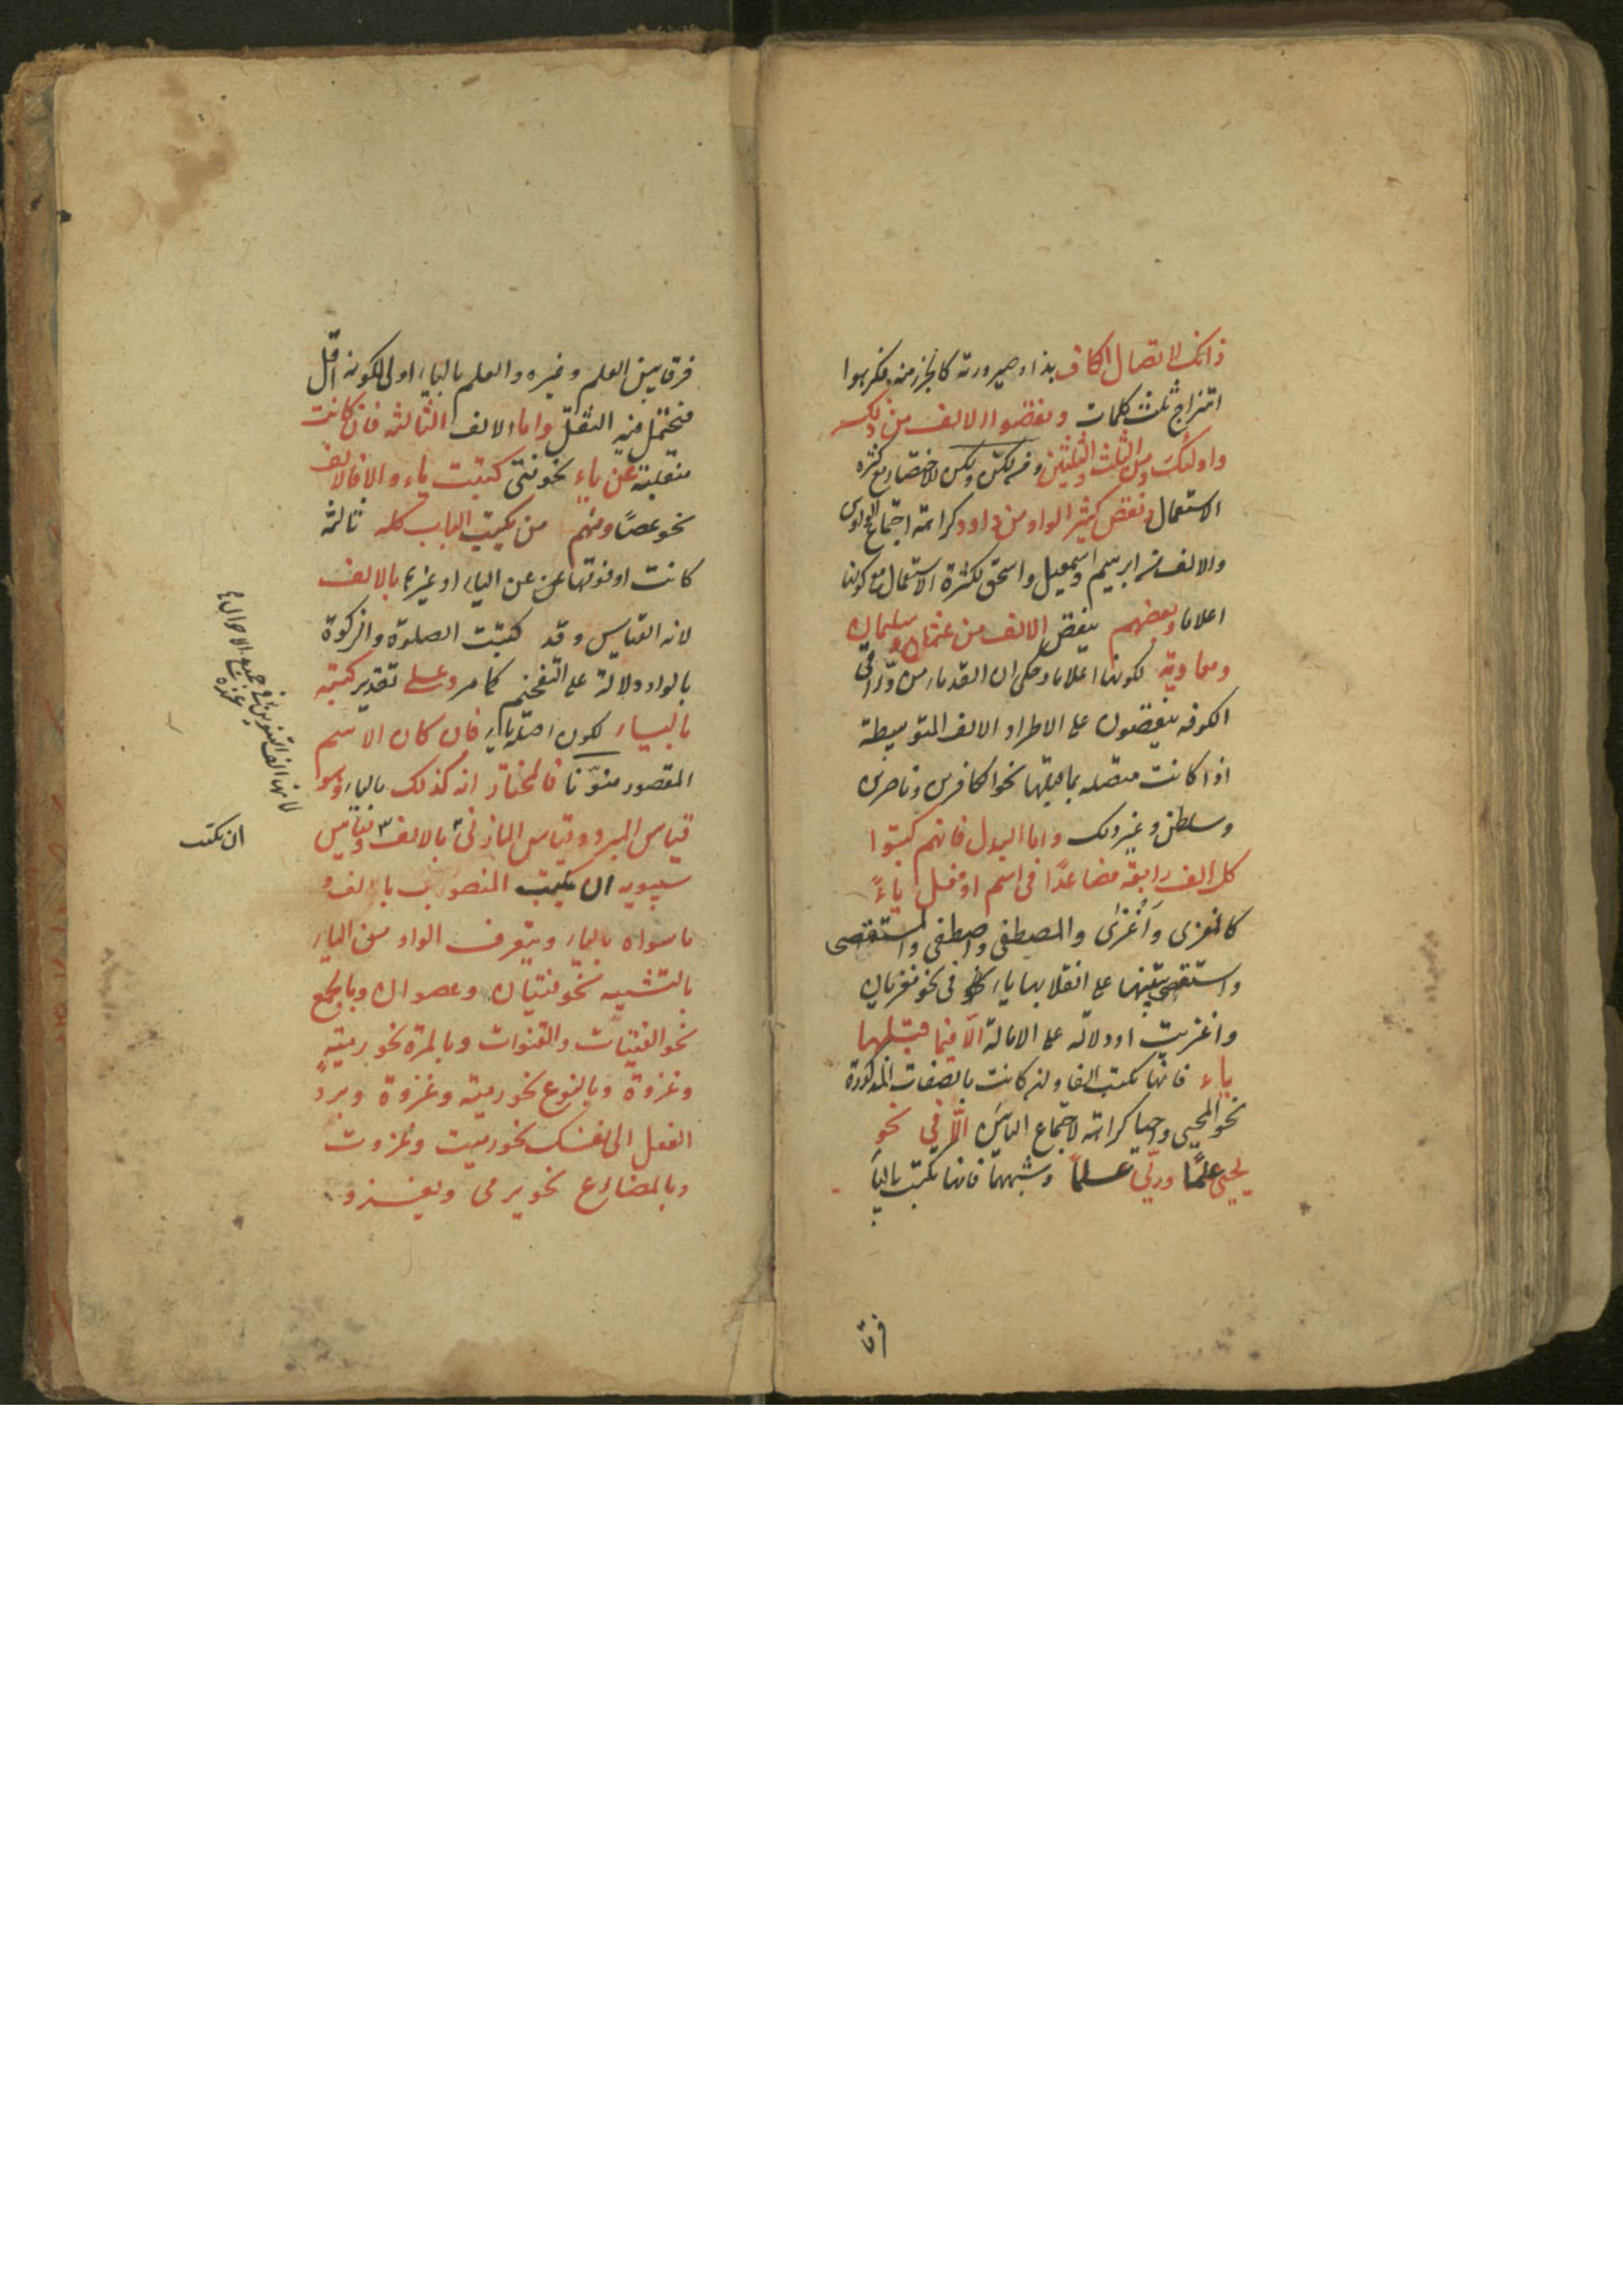 ذانك لاتصال الكاف بذا وصيرورته كالجزء منه فكرهوا
امتزاج ثلث كلمات ونقضوا الالف من ذلك
واولئك ومن الثلث والثلثين وفي لكن ولكن للاختصار مع كثرة
الاستعمال ونقض كثير الواو من داود كراهة اجتماع الواوين
والالف من ابرهيم واسمعيل واسحق لكثرة الاستعمال مع كونها
اعلاما وبعضهم ينقض الالف من عثمان وسليمان
ومعاوية لكونها اعلاما وحكى ان القدماء من وراقى
الكوفه ينقضون على الاطراد الالف المتوسطة
اذا كانت متصله بما قبلها نحو الكافرين وناصرين
وسلطن وغير ذلك واما البدل فانهم كتبوا
كل الف رابعة فصاعدًا فى اسم او فعل ياءً
كالمغزى واغزى والمصطفى واصطفى والمستقصى
واستقصى تنبيها على انقلابها ياء فى نحو مغزيان
واغزيت او دلالة على الامالة الّا فيما قبلها
ياء فانها تكتب الفا وان كانت بالصفات المذكورة
نحو المحيى واحيا كراهة لاجتماع اليائين الّا فى نحو
يحيى علمًا وريّى علمًا وشبههما فانها تكتب بالياء
فرق
فرقا بين العلم وغيره والعلم بالياء اولى لكونه اقل
فيحتمل فيه الثقل واما الالف الثالثه فان كانت
منقلبة عن ياء نحو فتى كتبت ياء والا فالالف
نحو عصًا ومنهم من يكتب الباب كله ثالثة
كانت او فوقها عن الياء او غيرها بالالف
لانه القياس وقد كتبت الصلوة والزكوة
بالواو دلالة على التفخيم كما مر وعلى تقدير كتبه
بالياء لكون اصله ياء فان كان الاسم
المقصور منوّنا فالمختار انه كذلك بالياء وهو
قياس المبرد وقياس المازنى بالالف وقياس
سيبويه ان يكتب المنصوب بالالف و
ما سواه بالياء ويتعرف الواو من الياء
بالتثنيه نحو فتيان وعصوان وبالجمع
نحو الفتيات والقنوات وبالمرة نحو رمية
وغزوة وبالنوع نحو رمية وغزوة وبردّ
الفعل الى نفسك نحو رميت وغزوت
وبالمضارع نحو يرمى ويغزو
لانها الف التنوين فى جميع الاحوال
ان تكتب